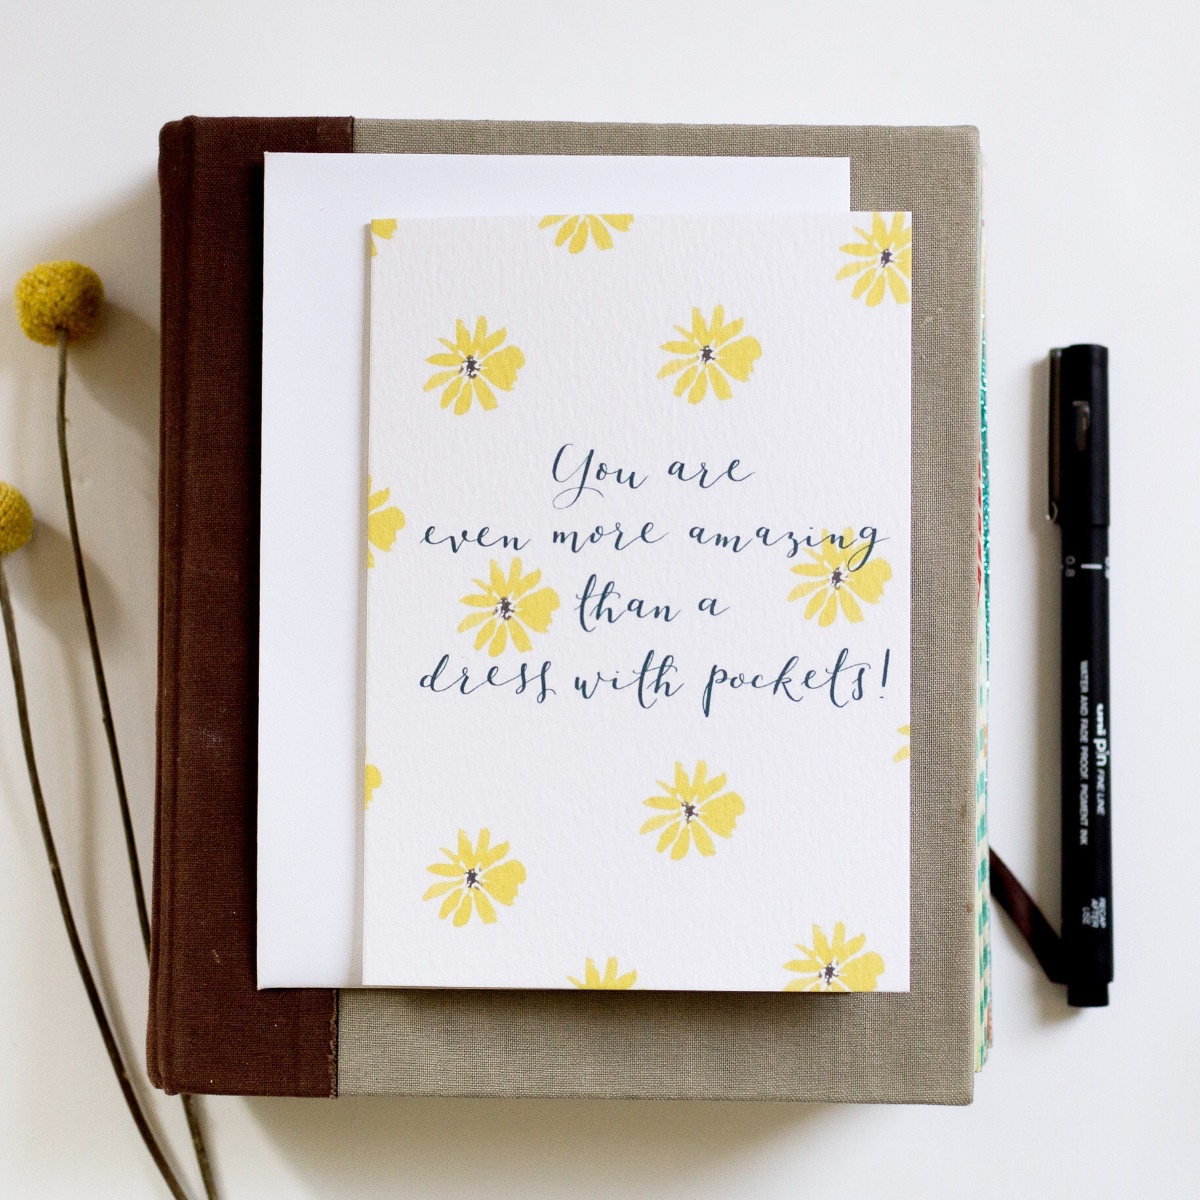 You are
even more amazing
than a
dress with pockets!
0.8
uni pin FINE LINE
WATER AND FADE PROOF PIGMENT INK
RECAP
AFTER
USE